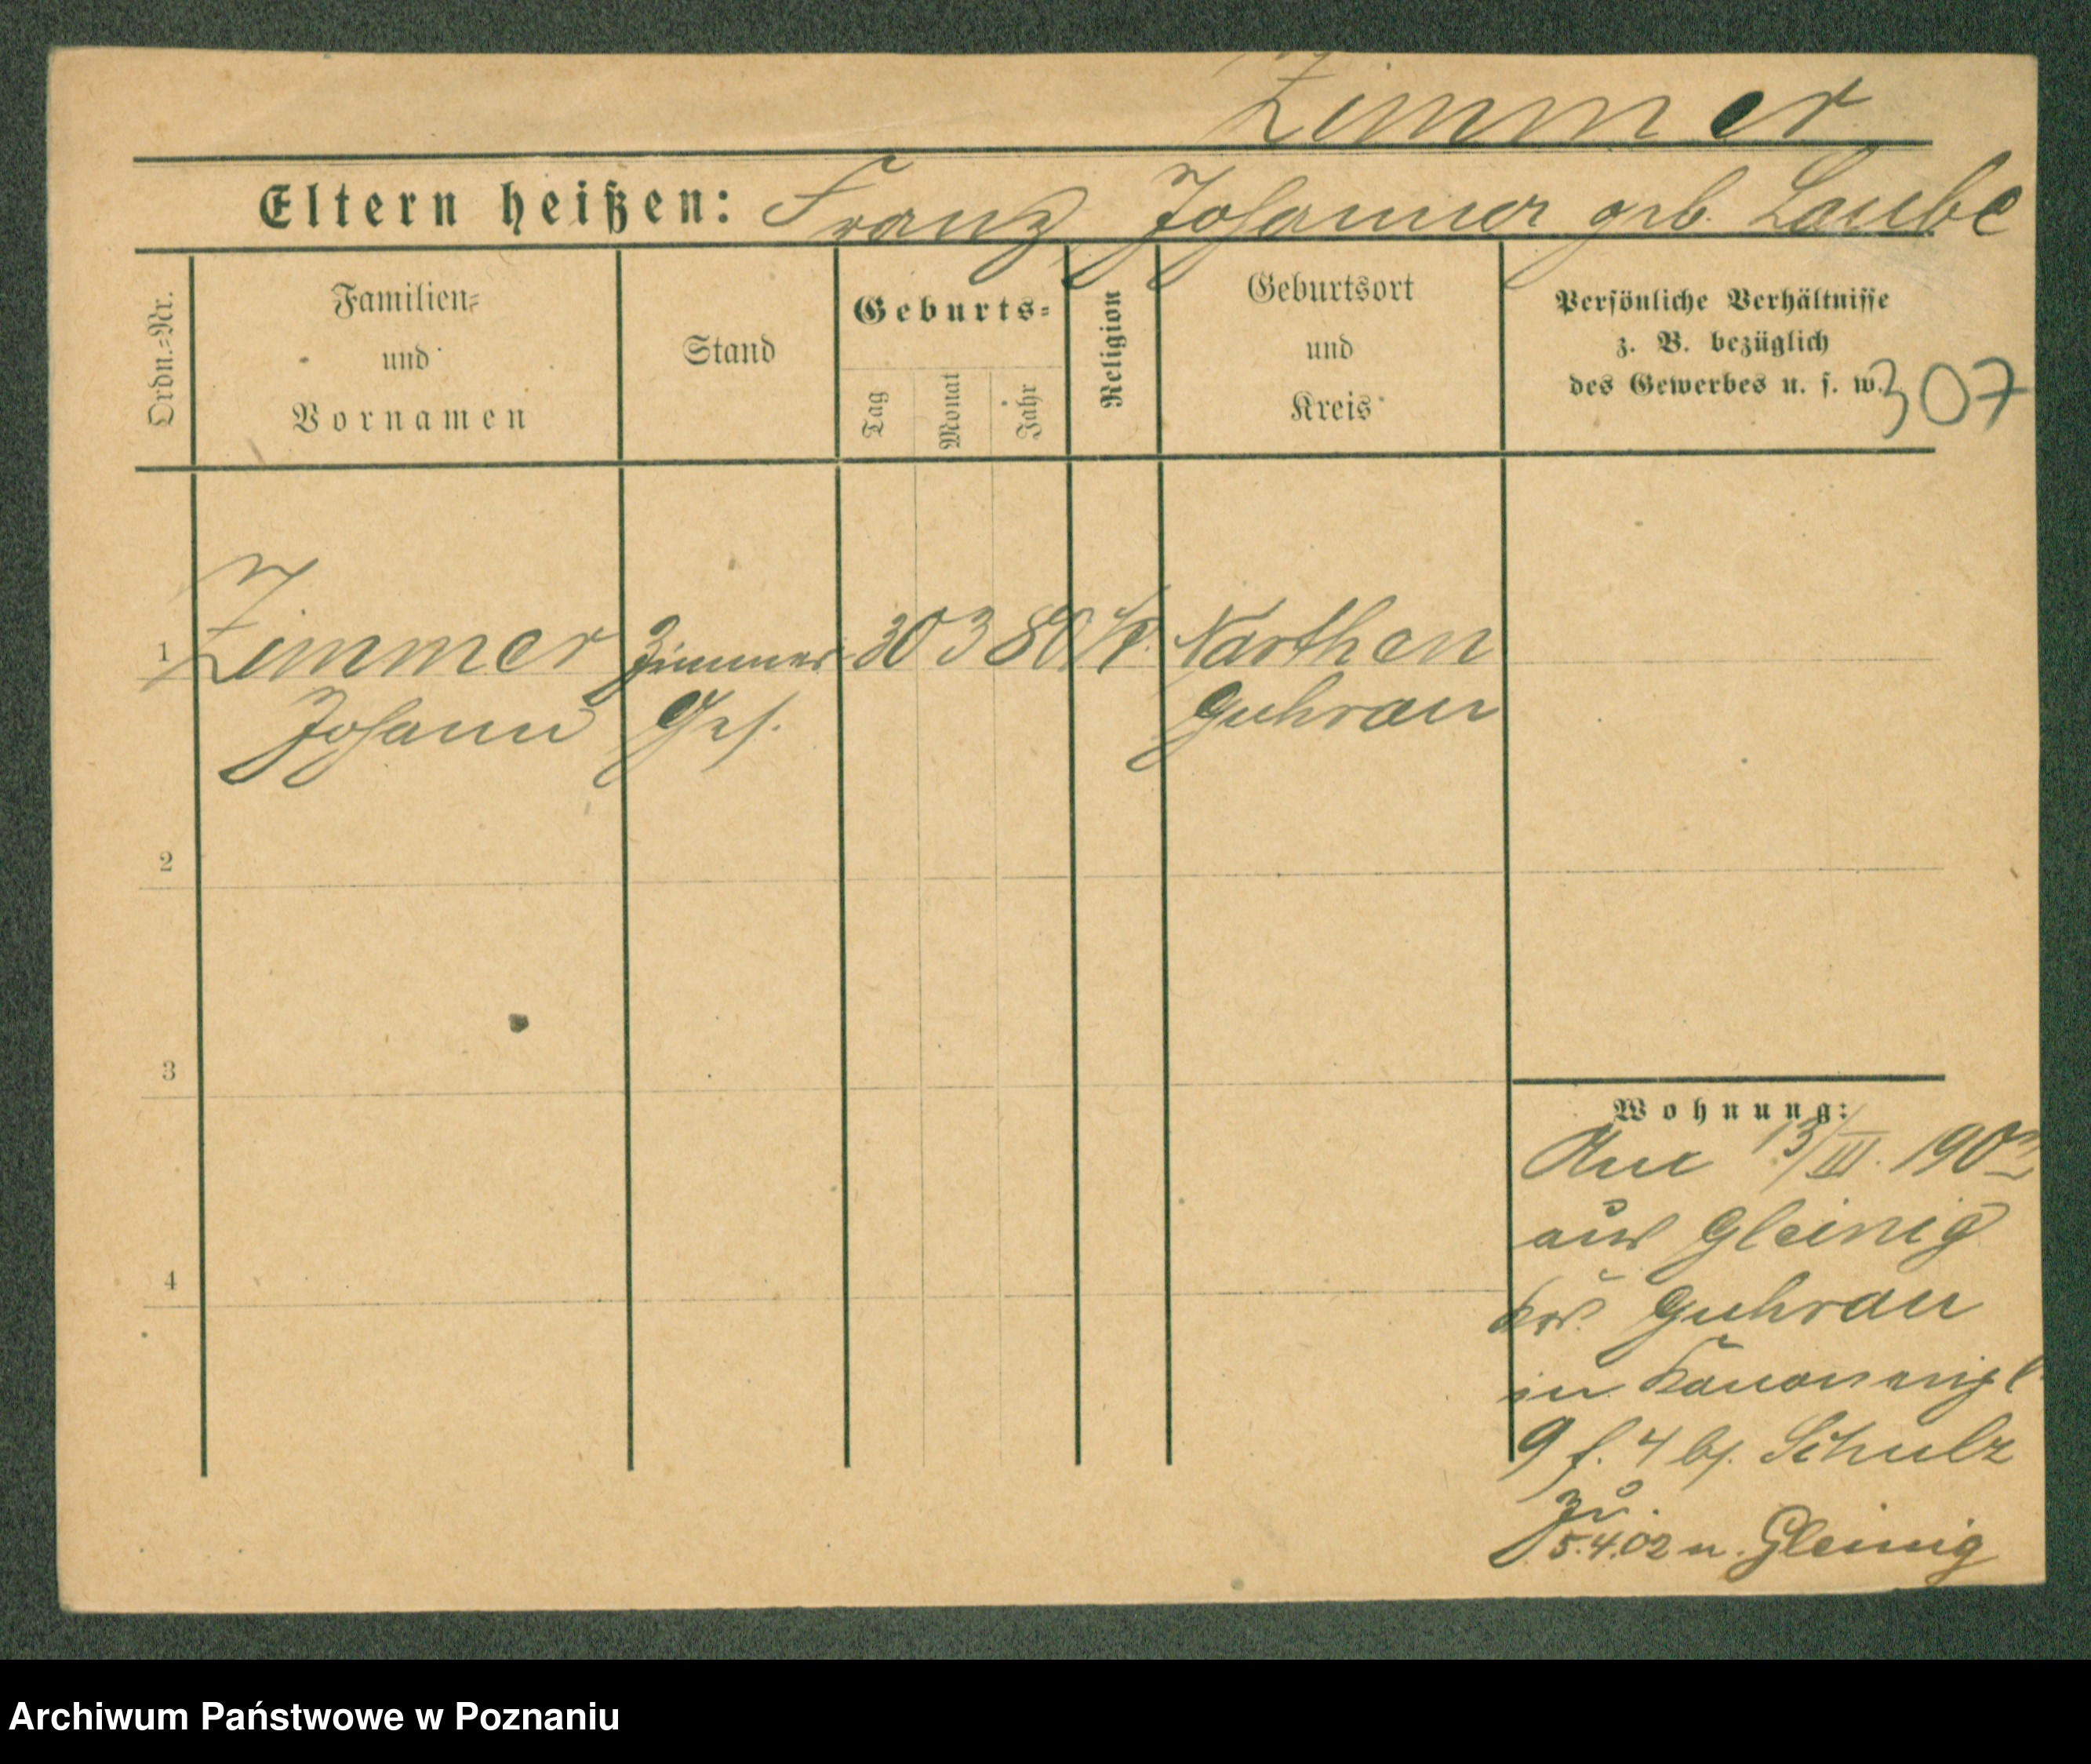 Zimmer
Eltern heißen: Franz Johanna geb. Laube
Ordn.-Nr.
Familien- und Vornamen
Stand
Geburts-
Tag
Monat
Jahr
Religion
Geburtsort und Kreis
Persönliche Verhältnisse
z. B. bezüglich
des Gewerbes u. s. w.
307
1 Zimmer Zimmer 30 3 80 Narthen
Johann Ges. Guhrau
2
3
4
Wohnung:
13/III. 190
aus Gleinig
Krs. Guhrau
in Kanonenpl
9 f. 4 bs. Schulz
zu
5.4.02 n. Gleinig
Archiwum Państwowe w Poznaniu